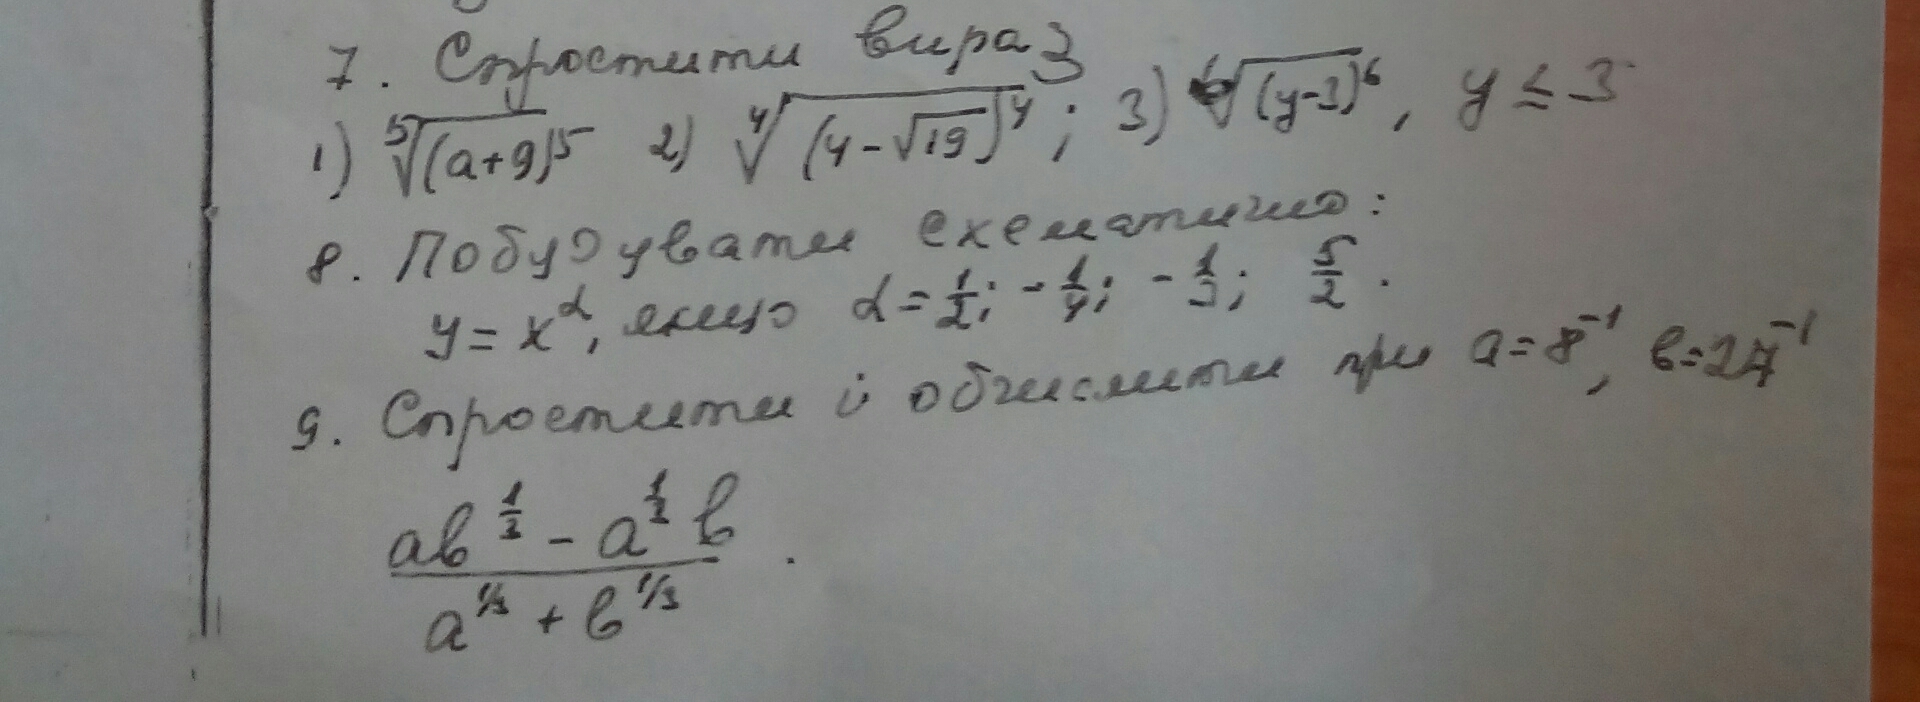 7. Спростити вираз
1) ⁵√(a+9)⁵ 2) ⁴√(4-√19)⁴; 3) ⁶√(y-3)⁶, y ≤ 3
8. Побудувати схематично:
y = x^α, якщо α = 1/2; -1/4; -1/3; 5/2.
9. Спростити і обчислити при a=8⁻¹, b=27⁻¹
(ab^(1/3) - a^(1/3) b) / (a^(1/3) + b^(1/3)).